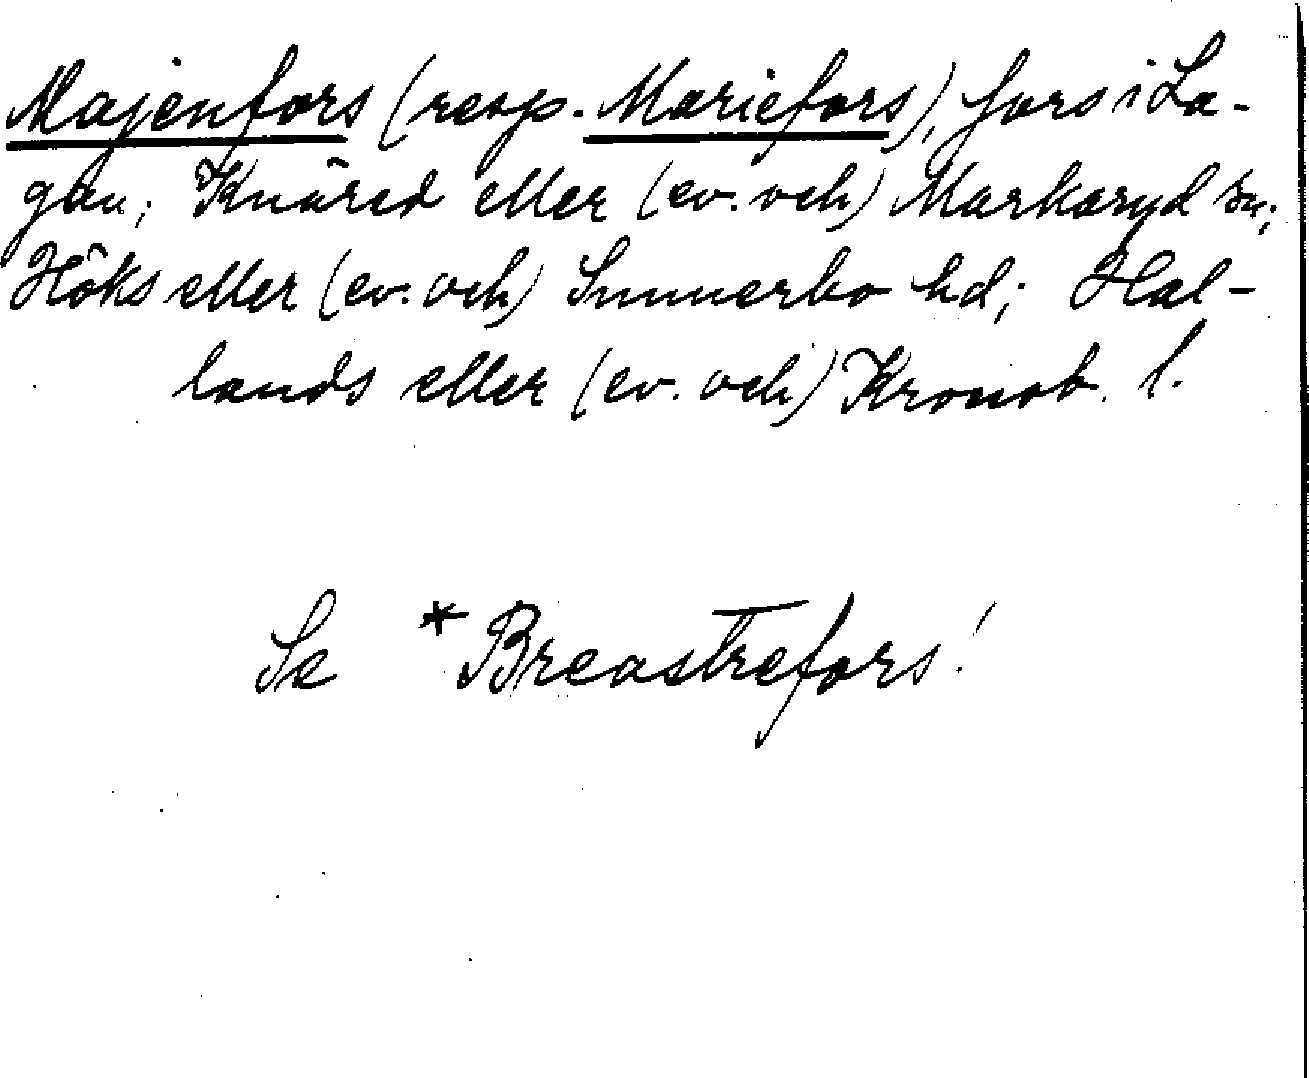 Majenfors (resp. Mariefors), fors i La-
gan; Knäred eller (ev. och) Markaryd sn;
Höks eller (ev. och) Sunnerbo hd; Hal-
lands eller (ev. och) Kronob. l.
Se *Breastrefors!